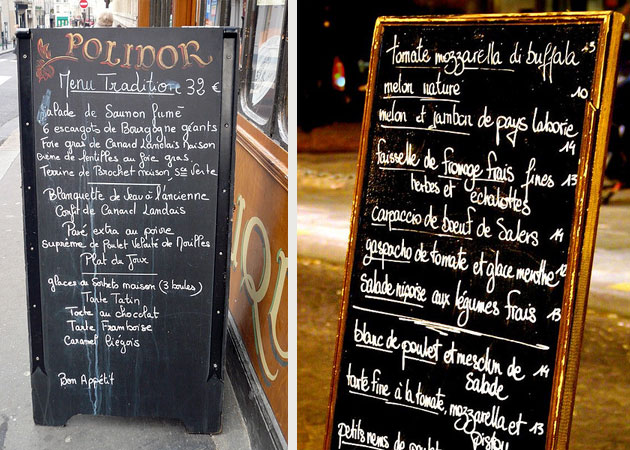 POLIDOR
Menu Tradition 32 €
Salade de Saumon fumé
6 escargots de Bourgogne géants
Foie gras de Canard Landais Maison
Crème de lentilles au foie gras.
Terrine de Brochet maison, sce Verte
Blanquette de Veau à l'ancienne
Confit de Canard Landais
Pavé extra au poivre
Suprême de Poulet Velouté de Morilles
Plat du Jour
glaces ou Sorbets maison (3 boules)
Tarte Tatin
Tarte au chocolat
Tarte Framboise
Caramel Liégois
Bon Appétit
tomate mozzarella di buffala 13
melon nature 10
melon et jambon de pays laborie
14
faisselle de fromage frais fines 13
herbes et échalottes
carpaccio de bœuf de Salers 14
gaspacho de tomate et glace menthe 12
salade niçoise aux légumes frais 13
blanc de poulet et mesclun de 14
salade
tarte fine à la tomate, mozzarella et 13
pistou
petits nems de poulet